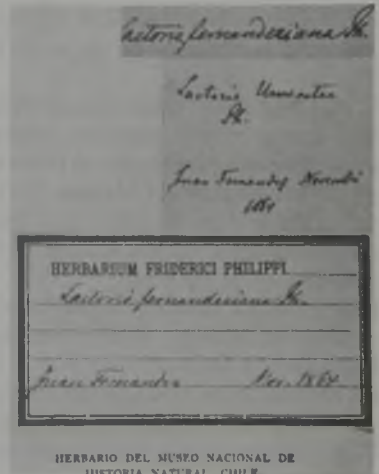 Lactoris fernandeziana Ph.
Lactoris
Ph.
Juan Fernandez Novembr
1864
HERBARIUM FRIDERICI PHILIPPI
Lactoris fernandeziana Ph.
Juan Fernandez Nov. 1864
HERBARIO DEL MUSEO NACIONAL DE
HISTORIA NATURAL, CHILE